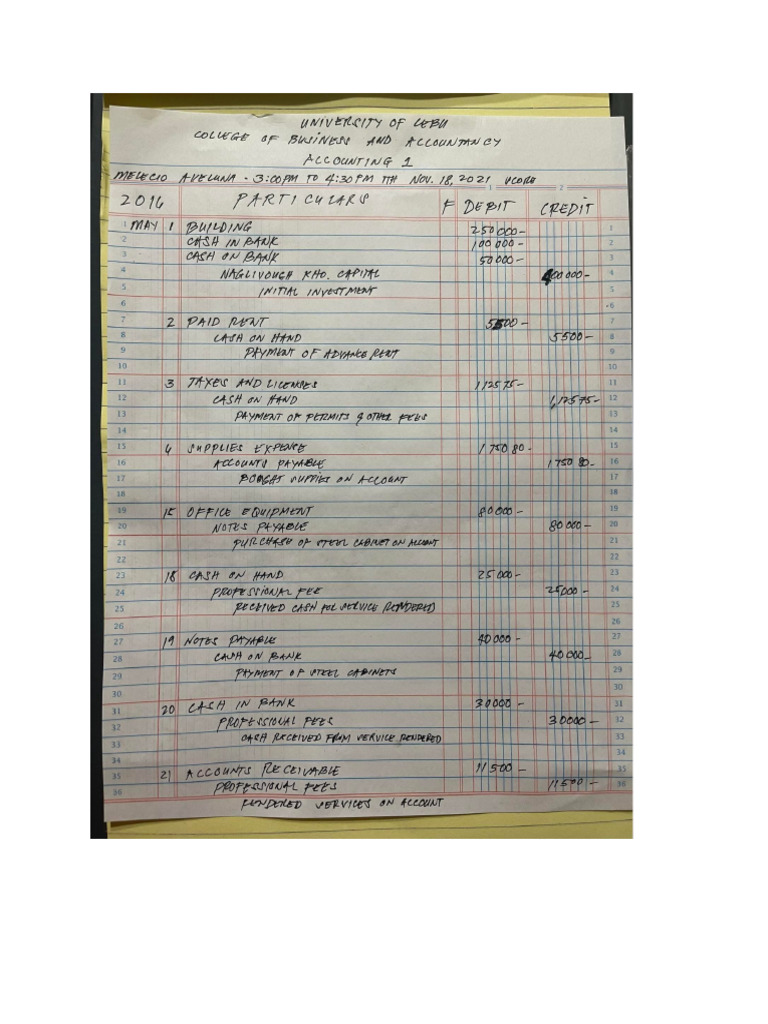 UNIVERSITY OF CEBU
COLLEGE OF BUSINESS AND ACCOUNTANCY
ACCOUNTING 1
MELECIO AVELUNA - 3:00PM TO 4:30PM TTH NOV. 18, 2021
1 2
2016 PARTICULARS F DEBIT CREDIT
1 MAY 1 BUILDING 250000- 1
2 CASH IN BANK 100000- 2
3 CASH ON BANK 50000- 3
4 NAGLIVOUGH KHO. CAPITAL 400000- 4
5 INITIAL INVESTMENT 5
6 6
7 2 PAID RENT 5500- 7
8 CASH ON HAND 5500- 8
9 PAYMENT OF ADVANCE RENT 9
10 10
11 3 TAXES AND LICENSES 1,125 75- 11
12 CASH ON HAND 1,125 75- 12
13 PAYMENT OF PERMITS & OTHER FEES 13
14 14
15 4 SUPPLIES EXPENCE 1750 80- 15
16 ACCOUNTS PAYABLE 1750 80- 16
17 BOUGHT SUPPIES ON ACCOUNT 17
18 18
19 15 OFFICE EQUIPMENT 80000- 19
20 NOTES PAYABLE 80000- 20
21 PURCHASE OF STEEL CABINET ON ACCOUNT 21
22 22
23 18 CASH ON HAND 25000- 23
24 PROFESSIONAL FEE 25000- 24
25 RECEIVED CASH FOR SERVICE RENDERED 25
26 26
27 19 NOTES PAYABLE 40000- 27
28 CASH ON BANK 40000- 28
29 PAYMENT OF STEEL CABINETS 29
30 30
31 20 CASH IN BANK 30000- 31
32 PROFESSIONAL FEES 30000- 32
33 CASH RECEIVED FROM SERVICE RENDERED 33
34 34
35 21 ACCOUNTS RECEIVABLE 11500- 35
36 PROFESSIONAL FEES 11500- 36
RENDERED SERVICES ON ACCOUNT